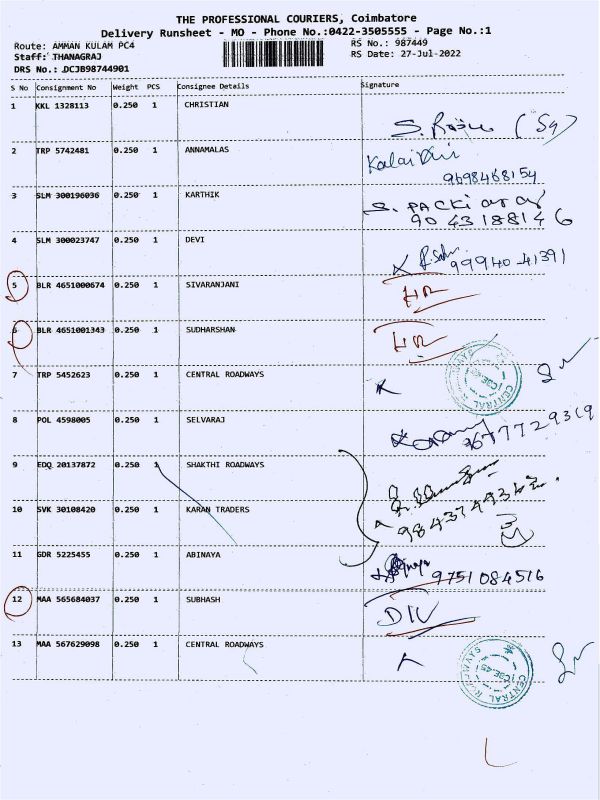 THE PROFESSIONAL COURIERS, Coimbatore
Delivery Runsheet - MO - Phone No.:0422-3505555 - Page No.:1
Route: AMMAN KULAM PC4 RS No.: 987449
Staff: THANAGRAJ RS Date: 27-Jul-2022
DRS No.: DCJB98744901
S No Consignment No Weight PCS Consignee Details Signature
1 KKL 1328113 0.250 1 CHRISTIAN
2 TRP 5742481 0.250 1 ANNAMALAS
9698468154
3 SLM 300196036 0.250 1 KARTHIK
9043188146
4 SLM 300023747 0.250 1 DEVI
99940-41391
5 BLR 4651000674 0.250 1 SIVARANJANI
6 BLR 4651001343 0.250 1 SUDHARSHAN
7 TRP 5452623 0.250 1 CENTRAL ROADWAYS
8 POL 4598005 0.250 1 SELVARAJ
9 EDQ 20137872 0.250 1 SHAKTHI ROADWAYS
10 SVK 30108420 0.250 1 KARAN TRADERS
11 GDR 5225455 0.250 1 ABINAYA 9751084516
12 MAA 565684037 0.250 1 SUBHASH
13 MAA 567629098 0.250 1 CENTRAL ROADWAYS